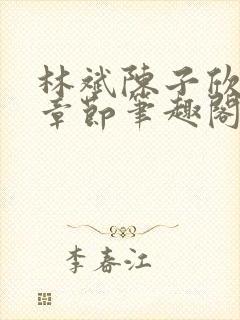 林斌陈子欣
章節笔趣閣
李春江